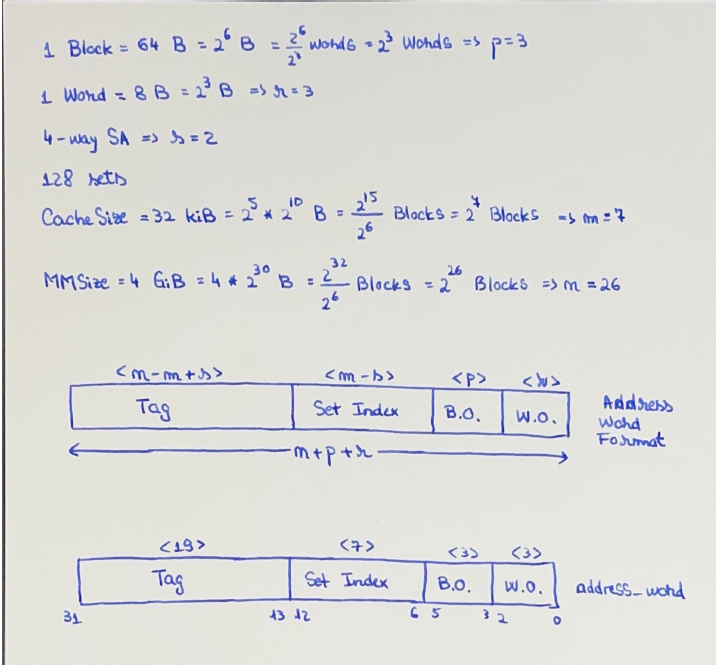 1 Block = 64 B = 2^6 B = 2^6/2^3 Words = 2^3 Words => p=3
1 Word = 8 B = 2^3 B => r=3
4-way SA => s=2
128 sets
Cache Size = 32 kiB = 2^5 * 2^10 B = 2^15/2^6 Blocks = 2^7 Blocks => m=7
MMSize = 4 GiB = 4 * 2^30 B = 2^32/2^6 Blocks = 2^26 Blocks => n=26
<n-m+s> <m-s> <p> <r>
Tag Set Index B.O. W.O. Address Word Format
n+p+r
<19> <7> <3> <3>
Tag Set Index B.O. W.O. address_word
31 13 12 6 5 3 2 0